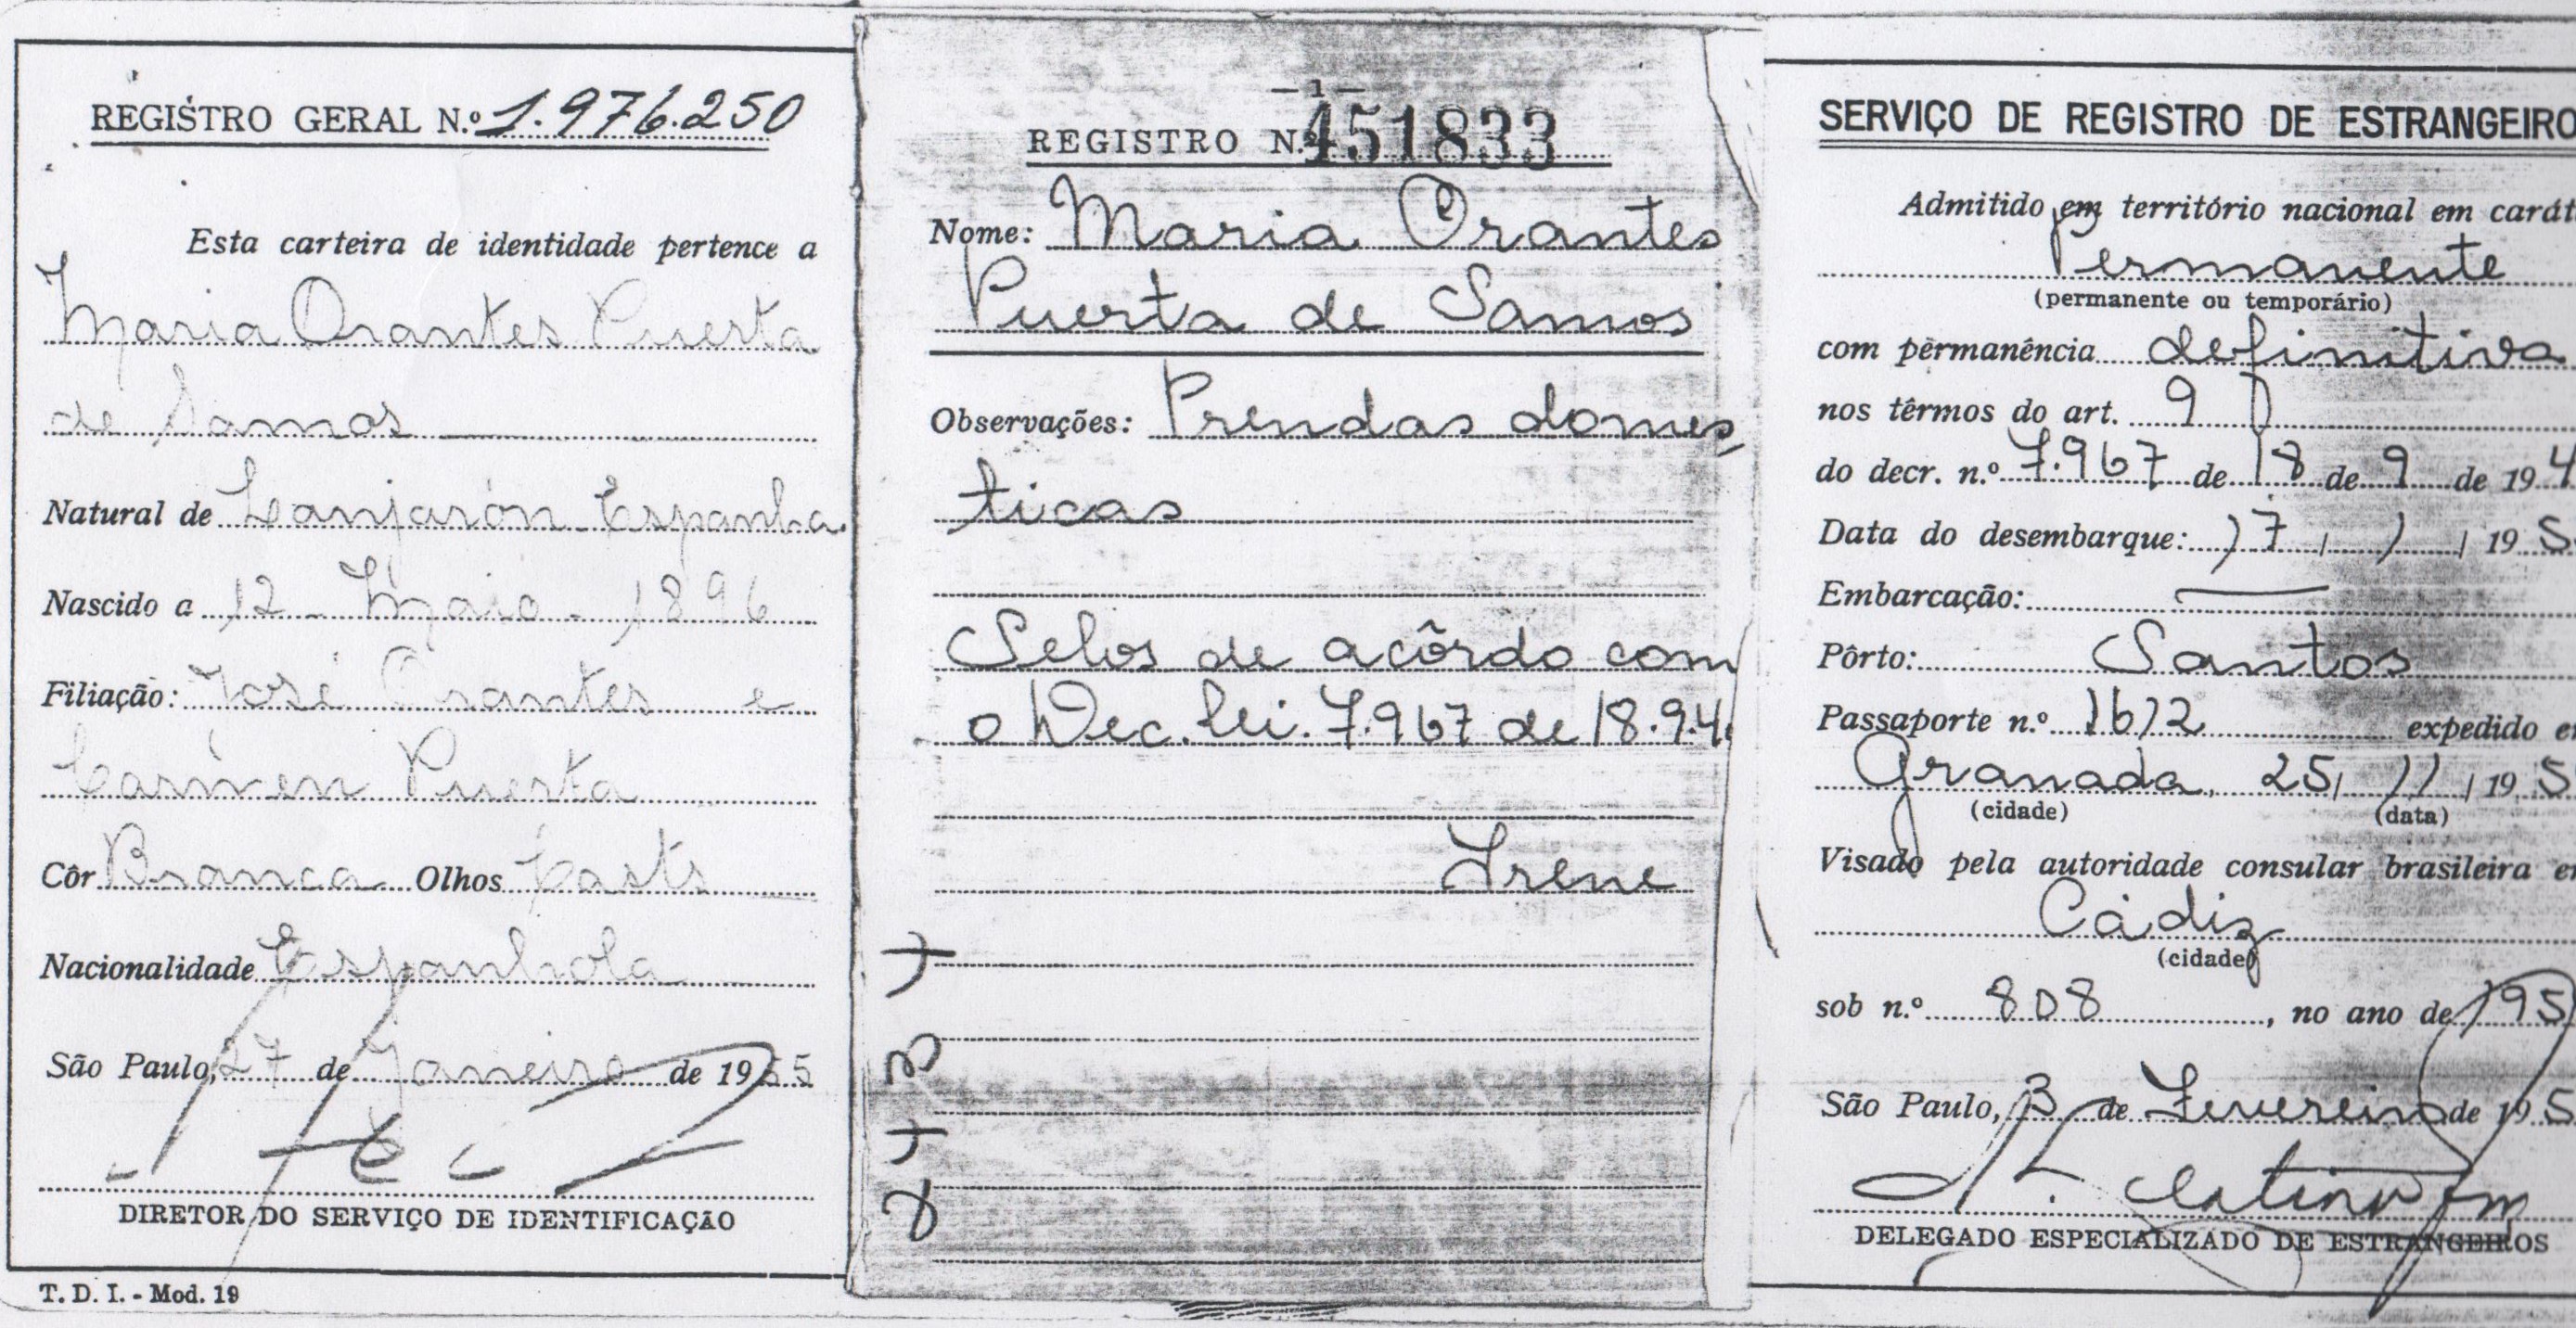 REGISTRO GERAL N.º 1.976.250
Esta carteira de identidade pertence a
Maria Orantes Puerta
de Samos
Natural de Lanjarón Espanha.
Nascido a 12 - Maio - 1896
Filiação: José Orantes e
Carmen Puerta
Côr Branca Olhos Casts
Nacionalidade Espanhola
São Paulo, 27 de Janeiro de 1955
DIRETOR DO SERVIÇO DE IDENTIFICAÇÃO
T. D. I. - Mod. 19
— 1 —
REGISTRO N.º 451833
Nome: Maria Orantes
Puerta de Samos
Observações: Prendas domes
ticas
Selos de acôrdo com
o Dec. lei. 7.967 de 18.9.4
Irene
SERVIÇO DE REGISTRO DE ESTRANGEIRO
Admitido em território nacional em carát
Permanente
(permanente ou temporário)
com permanência definitiva
nos têrmos do art. 9
do decr. n.º 7.967 de 18 de 9 de 194
Data do desembarque: 17 / 1 / 195
Embarcação: —
Pôrto: Santos
Passaporte n.º 1612 expedido e
Granada, 25 / 11 / 195
(cidade) (data)
Visado pela autoridade consular brasileira e
Cádiz
(cidade)
sob n.º 808, no ano de 195
São Paulo, 3 de Fevereiro de 195
DELEGADO ESPECIALIZADO DE ESTRANGEIROS